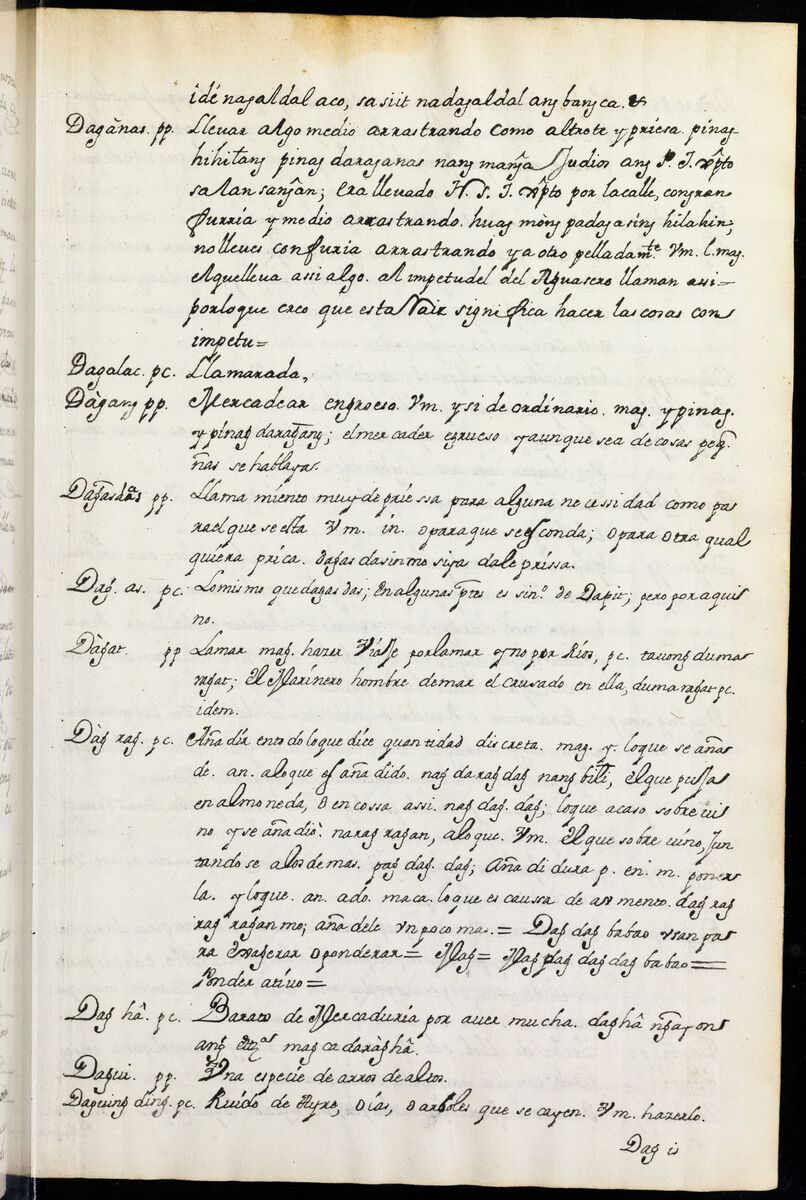 idé nagaldal aco, sa siit na dagaldal ang bangca. &
Dagànas. pp. Lleuar algo medio arrastrando como altrote y priesa. pinag
hihitang pinag daraganas nang manga Judios ang P. J. xpto
sa lansangan; era lleuado N. S. J. xpto por la calle, congran
furria y medio arrastrando. huag mòng padagasing hilahin;
no lleues con furia arrastrando y a otro pelladamte. Vm. l. mag.
el que lleua assi algo. al impetu del del Aguasero llaman assi-
por lo que creo que esta Raiz significa hacer las cosas con
impetu=
Dagalac. pc. Llamarada,
Dàgang pp. Mercadear engroeso. Vm. y si de ordinario. mag. y pinag.
y pinag daragang; el mercader egrueso y aunque sea de cosas peq.
ñas se hablaya.
Dagasdas pp. Llama miento muy de priessa para alguna necessidad como pa
ra el que se esta Vm. in. o para que se esconda; o para otra qual
quiera prica. dagasdasin mo siya dale prissa.
Dag. as. pc. Lo mismo que dagasdas; en algunas ptes es sino. de Dapit; pero por aqui
no.
Dàgat. pp Lamar mag. hazer Viaje por lamar y no por Rios, pc. tauong duma
ragat; El Marinero hombre demar el crusado en ella, dumaragat pc.
idem.
Dàg rag. pc. Añadir en todo lo que dice quantidad discreta. mag. y. lo que se aña
de. an. alo que es añadido. nag darag dag nang bili, el que puja
en almoneda, o en cossa assi. nag dag. dag; lo que acaso sobre ui
no y se añadiò. narag ragan, alo que. Vm. El que sobre uino, Jun
tandose a los de mas. pag dag. dag; Aña didura p. en. m. poner
la. y lo que. an. ado. maca. lo que es caussa de aumento. dag rag
rag ragan mo; añadele vn poco mas. = Dag dag babao vsan pa
ra exagerar o ponderar= Nag= Nag pag dag dag babao=
Ponderatiuo=
Dag hâ. pc. Barato de Mercaduria por auer mucha. daghâ ngayon
ang ettza mag ca daràghâ.
Dagui. pp. Vna especie de arros de altos.
Daguing ding. pc. Ruido de Ayre, o ias, o arboles que se cayen. Vm. hazerlo.
Dag is